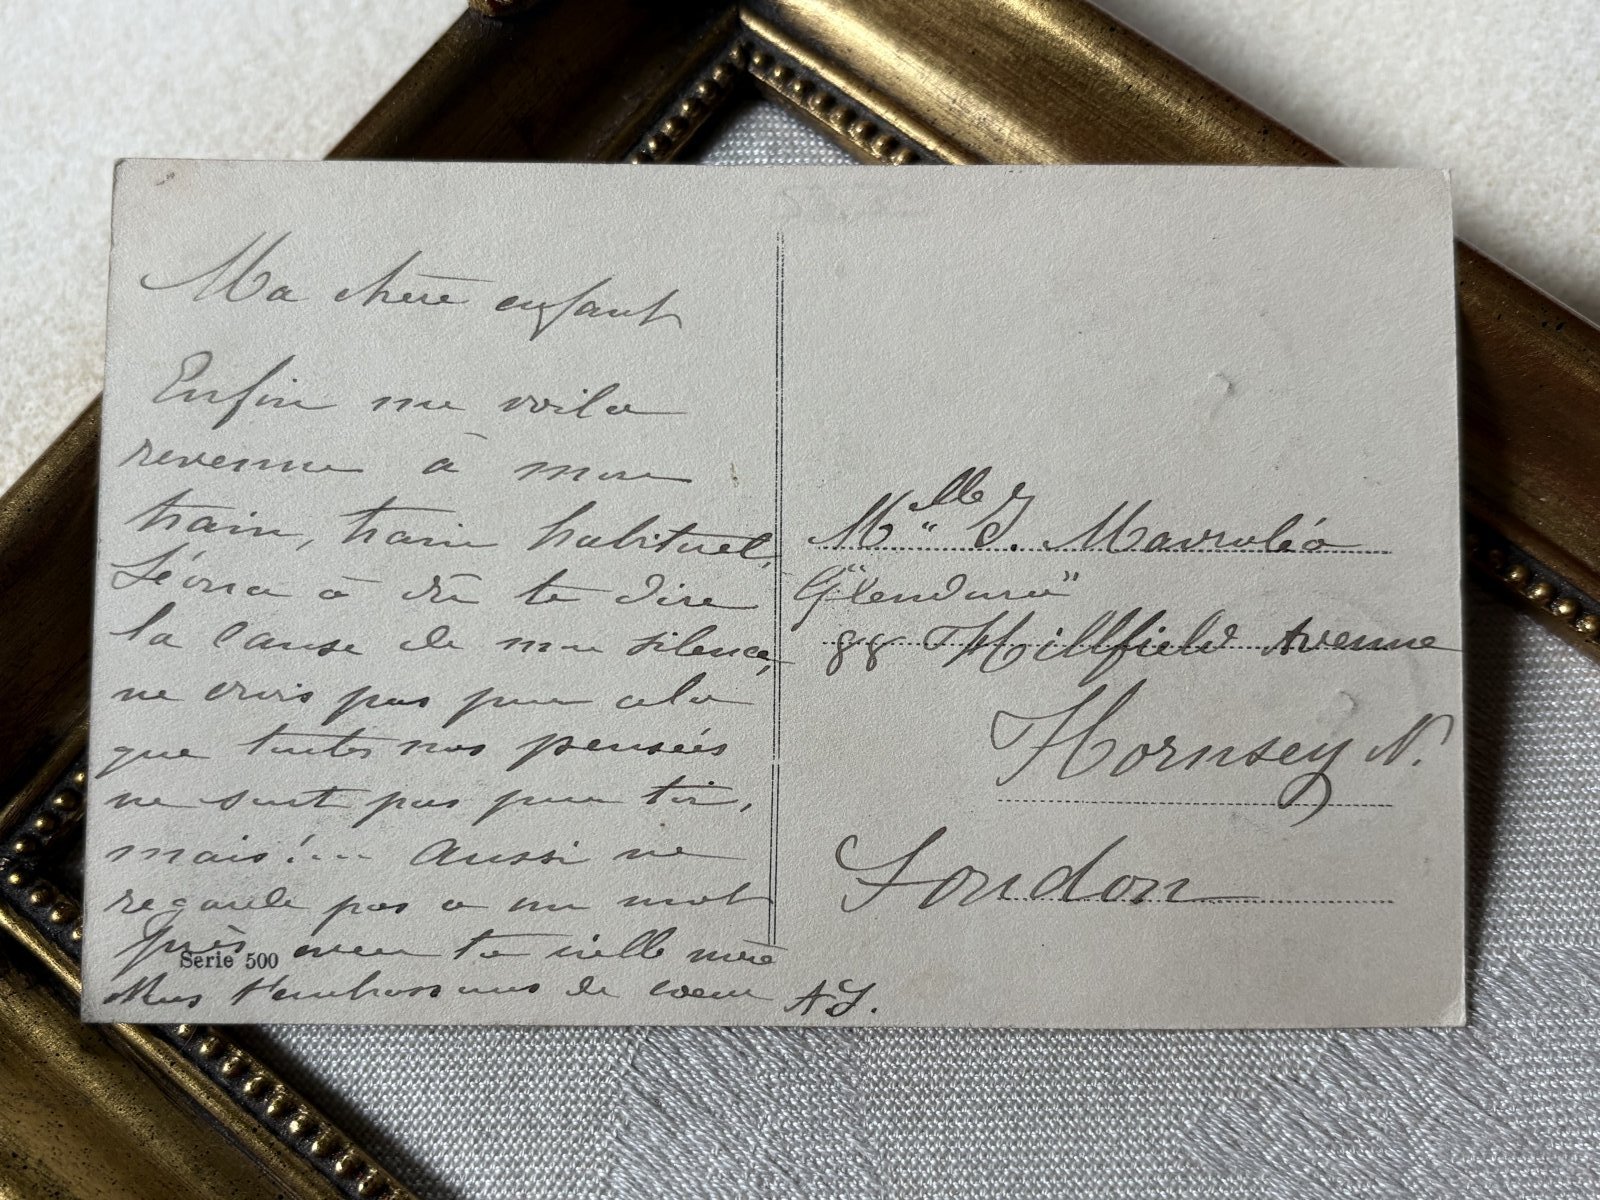 Ma chère enfant
Enfin me voila
revenue à mon
train, train habituel,
Léona à dû te dire
la cause de mon silence,
ne crois pas pour cela
que toutes nos pensées
ne sont pas pour toi,
mais!... Aussi ne
regarde pas a un mot
avec ta vielle mère
Nous t'embrassons de coeur A.J.
Serie 500
Mlle J. Mavroléo
"Glendure"
88 Hillfield Avenue
Hornsey N.
London